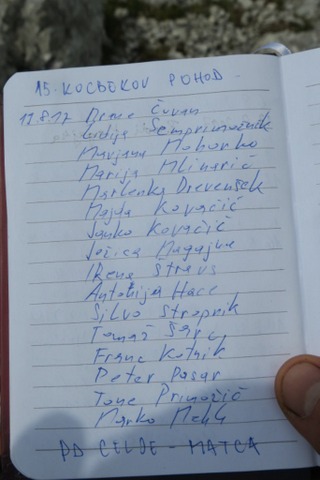 15. KOCBEKOV POHOD
11.8.17 Drago Čuvan
Lidija Šemprimožnik
Marjana Mohorko
Marija Mlinarič
Marlenka Drevenšek
Majda Kovačič
Janko Kovačič
Jožica Magajne
Irena Štraus
Antonija Hace
Silvo Stropnik
Tomaž
Franc Kotnik
Peter Posar
Tone Primožič
Marko
PD CELJE - MATICA